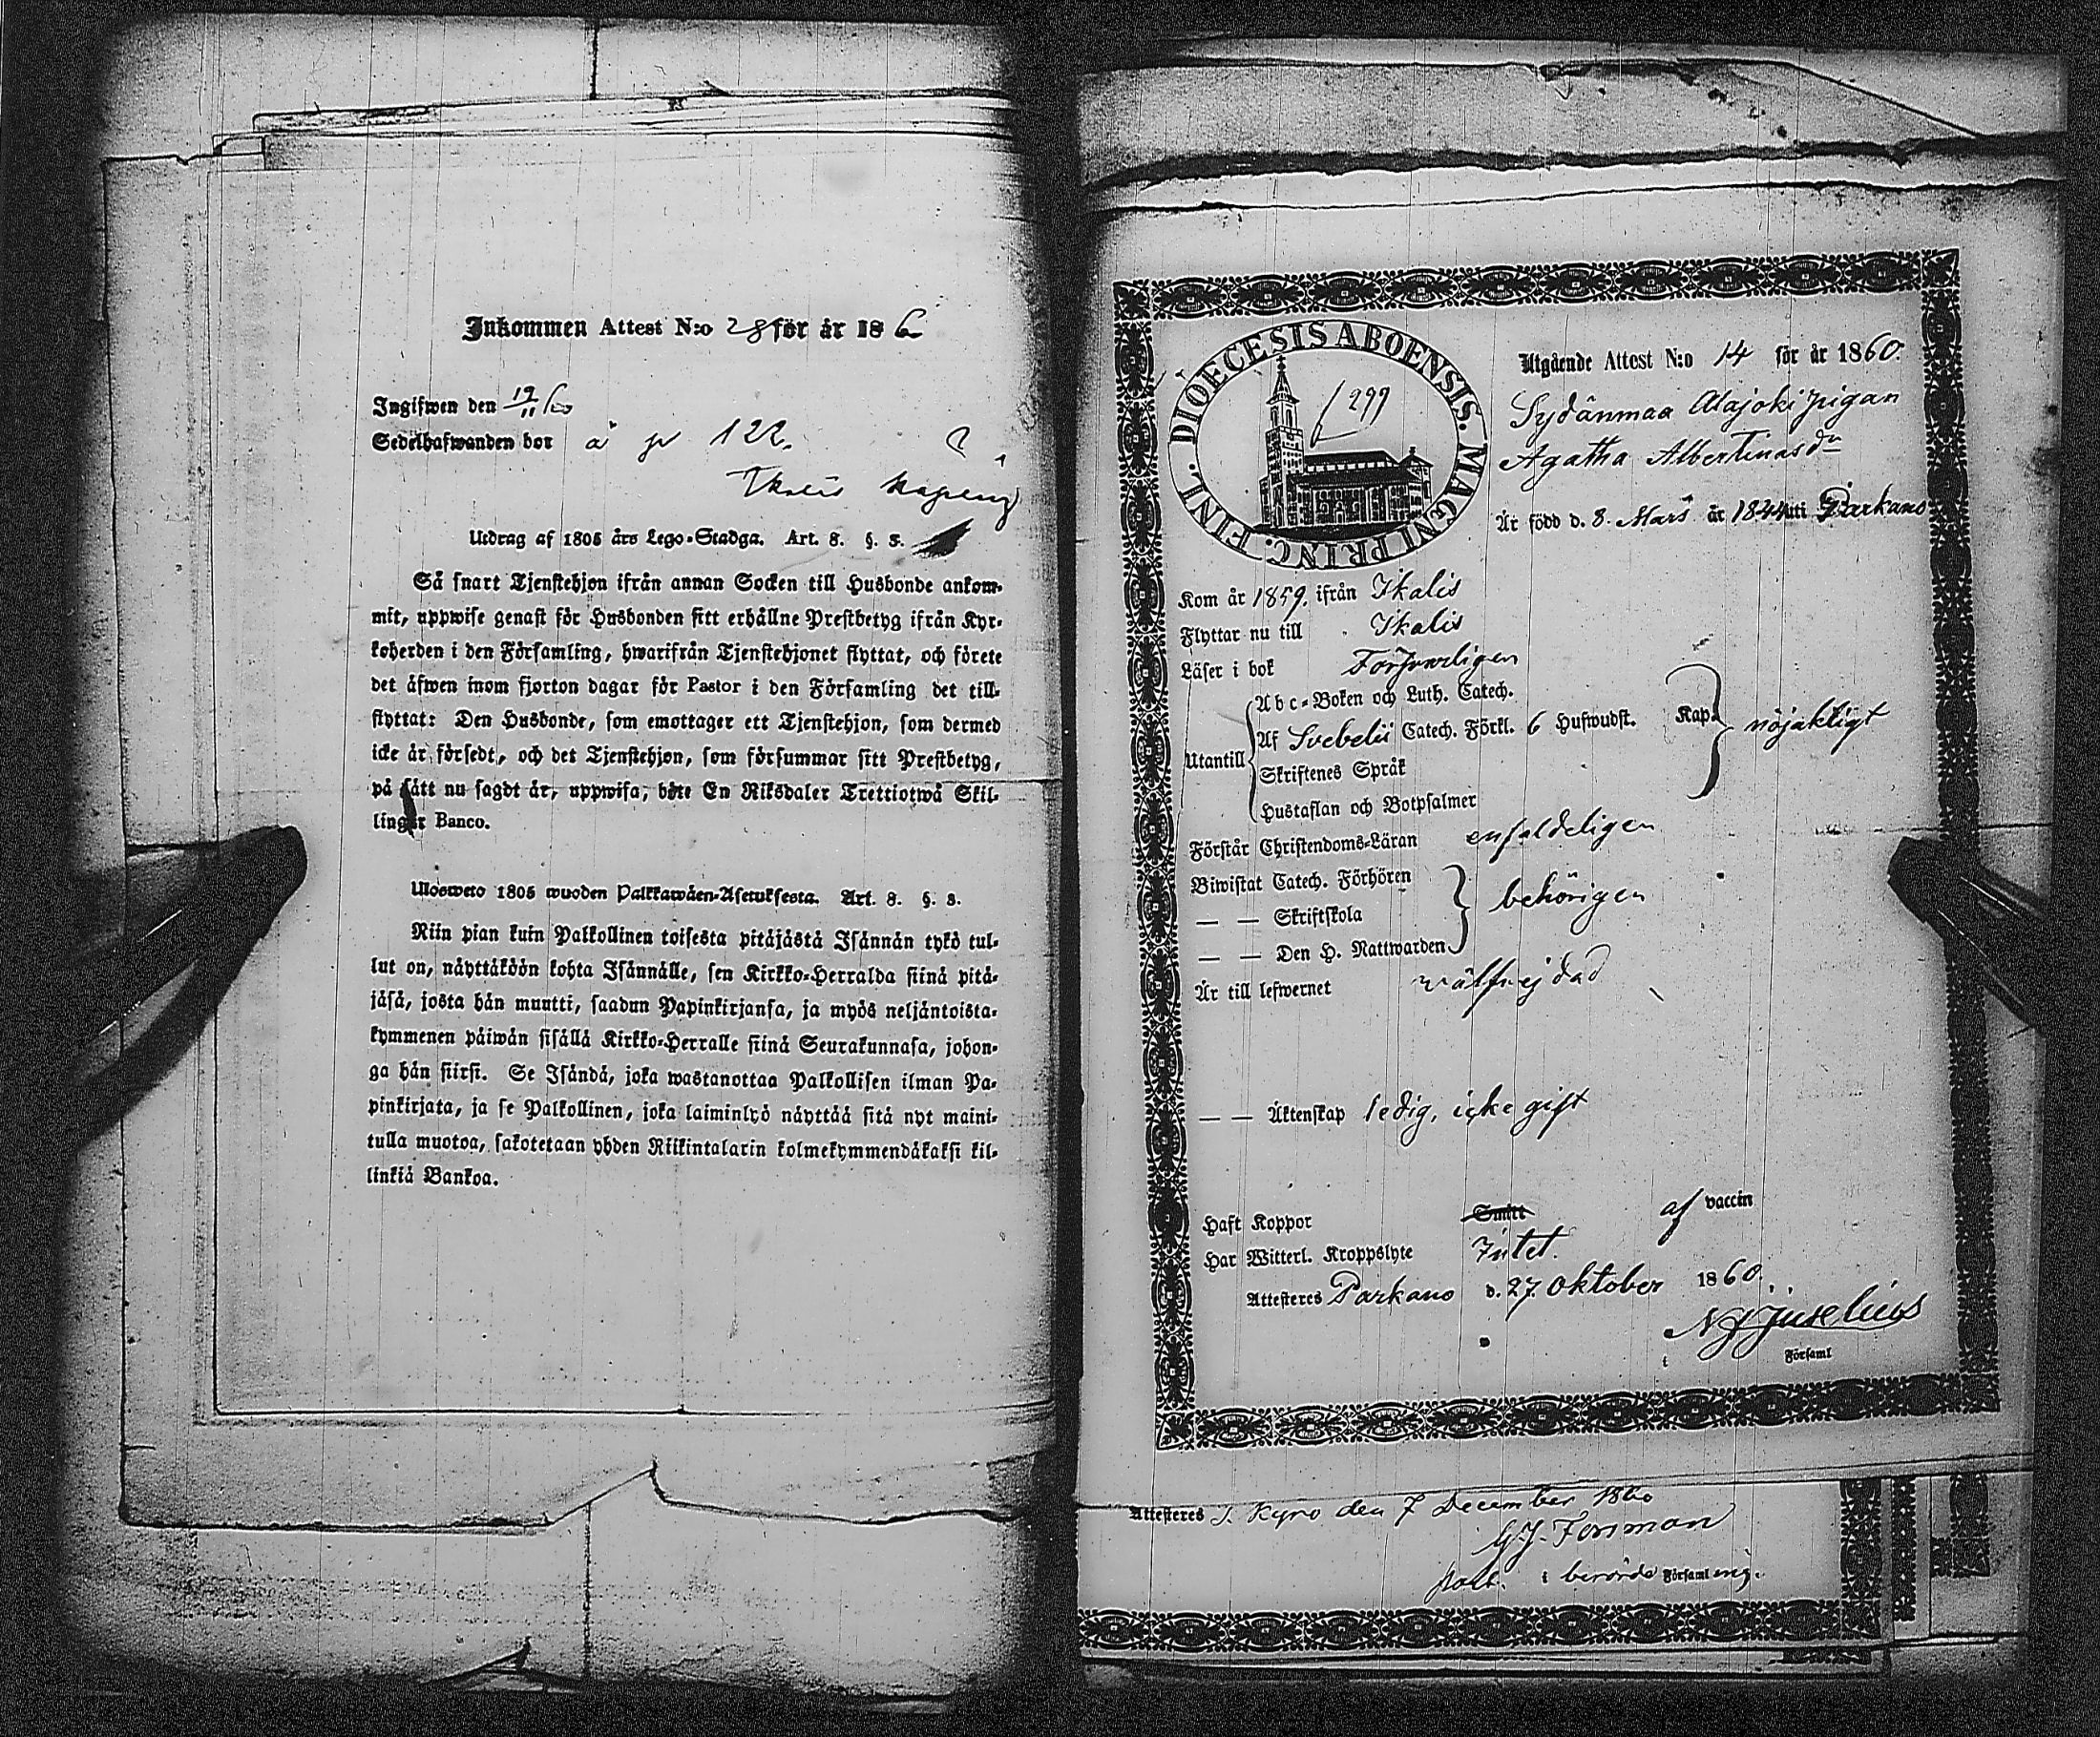 Inkommen Attest N:o 28 för år 186
Ingifwen den 19/11 60
Sedelhafwanden bor å p 122.
Ikalis
Utdrag af 1805 års Lego-Stadga. Art. 8. §. 3.
Så snart Tjenstehjon ifrån annan Socken till Husbonde ankom-
mit, uppwise genast för Husbonden sitt erhållne Prestbetyg ifrån Kyr-
koherden i den Församling, hwarifrån Tjenstehjonet flyttat, och förete
det äfwen inom fjorton dagar för Pastor i den Församling det till-
flyttat: Den Husbonde, som emottager ett Tjenstehjon, som dermed
icke är försedt, och det Tjenstehjon, som försummar sitt Prestbetyg,
på sätt nu sagdt är, uppwisa, böte En Riksdaler Trettiotwå Skil-
lingar Banco.
Uloswето 1805 wuoden Palkkawäen-Asetuksesta. Art. 8. §. 3.
Niin pian kuin Palkollinen toisesta pitäjästä Isännän tykö tul-
lut on, näyttäköön kohta Isännälle, sen Kirkko-Herralda siinä pitä-
jäsä, josta hän muutti, saadun Papinkirjansa, ja myös neljäntoista-
kymmenen päiwän sisällä Kirkko-Herralle siinä Seurakunnasa, johon-
ga hän siirsi. Se Isändä, joka wastanottaa Palkollisen ilman Pa-
pinkirjata, ja se Palkollinen, joka laiminlyö näyttää sitä nyt maini-
tulla muotoa, sakotetaan yhden Riikintalarin kolmekymmendäkaksi kil-
linkiä Bankoa.
DIOECESIS ABOENSIS. MAGNI PRINC. FINL.
299
Utgående Attest N:o 14 för år 1860.
Sydänmaa Alajoki pigan
Agatha Albertinasdr
Är född d. 8. Mars år 1844 uti Parkano
Kom år 1859. ifrån Ikalis
Flyttar nu till Ikalis
Läser i bok Försvarligen
Utantill
Abc-Boken och Luth. Catech.
Af Svebelii Catech. Förkl. 6 Hufwudst. Kap. nöjaktigt
Skriftenes Språk
Hustaflan och Botpsalmer
Förstår Christendoms-Läran enfaldeligen
Biwistat Catech. Förhören
— — Skriftskola behörigen
— — Den H. Nattwarden
Är till lefwernet välfrejdad
— — Äktenskap ledig, icke gift
Haft Koppor Smitt af vaccin
Har Witterl. Kroppslyte Intet.
Attesteres Parkano d. 27. Oktober 1860.
N J Juselius
i Församl
Attesteres i Kyro den 7 December 1860
G J. Forsman
past. i berörde Församling.